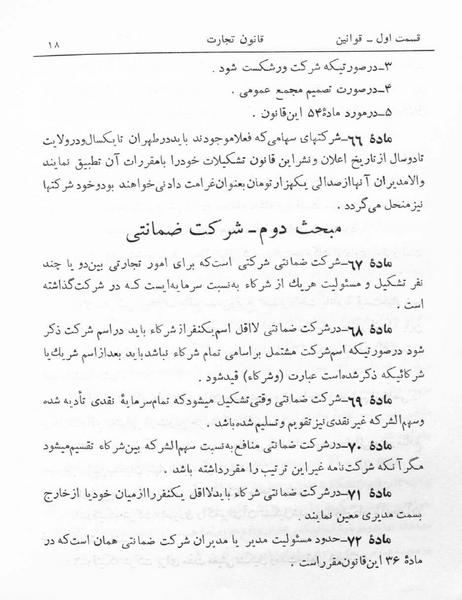 قسمت اول ـ قوانین قانون تجارت ۱۸
۳ـ درصورتیکه شرکت ورشکست شود .
۴ـ درصورت تصمیم مجمع عمومی .
۵ـ درمورد مادهٔ ۵۴ این قانون .
مادهٔ ۶۶ـ شرکتهای سهامی که فعلا موجودند باید درطهران تا یکسال و درولایت
تا دوسال از تاریخ اعلان و نشر این قانون تشکیلات خود را با مقررات آن تطبیق نمایند
والا مدیران آنها از صد الی یکهزار تومان بعنوان غرامت دادنی خواهند بود و خود شرکتها
نیز منحل می گردد .
مبحث دوم ـ شرکت ضمانتی
مادهٔ ۶۷ـ شرکت ضمانتی شرکتی است که برای امور تجارتی بین دو یا چند
نفر تشکیل و مسئولیت هر یک از شرکاء به نسبت سرمایه ایست کـه در شرکت گذاشته
است .
مادهٔ ۶۸ـ درشرکت ضمانتی لااقل اسم یکنفر از شرکاء باید دراسم شرکت ذکر
شود درصورتیکه اسم شرکت مشتمل بر اسامی تمام شرکاء نباشد باید بعد از اسم شریک یا
شرکائیکه ذکر شده است عبارت (وشرکاء) قید شود .
مادهٔ ۶۹ـ شرکت ضمانتی وقتی تشکیل میشود که تمام سرمایهٔ نقدی تأدیه شده
وسهم الشرکه غیر نقدی نیز تقویم و تسلیم شده باشد .
مادهٔ ۷۰ـ درشرکت ضمانتی منافع به نسبت سهم الشرکه بین شرکاء تقسیم میشود
مگر آنکه شرکت نامه غیر این ترتیب را مقرر داشته باشد .
مادهٔ ۷۱ـ درشرکت ضمانتی شرکاء باید لااقل یکنفر را از میان خود یا از خارج
بسمت مدیری معین نمایند .
مادهٔ ۷۲ـ حدود مسئولیت مدیر یا مدیران شرکت ضمانتی همان است که در
مادهٔ ۳۶ این قانون مقرر است .